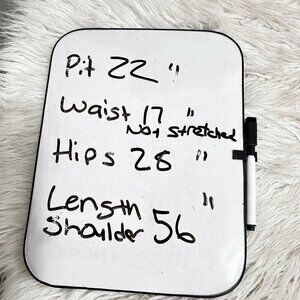 Pit 22 "
Waist 17 "
Not Stretched
Hips 28 "
Length "
Shoulder 56